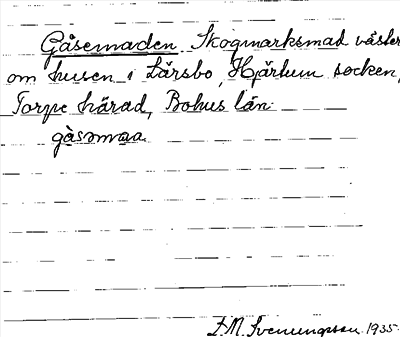 Gåsemaden Skogmarksmad väster
om husen i Lärsbo, Hjärtum socken,
Torpe härad, Bohus län.
gåsəmaa
F.M. Svenungsson 1935.